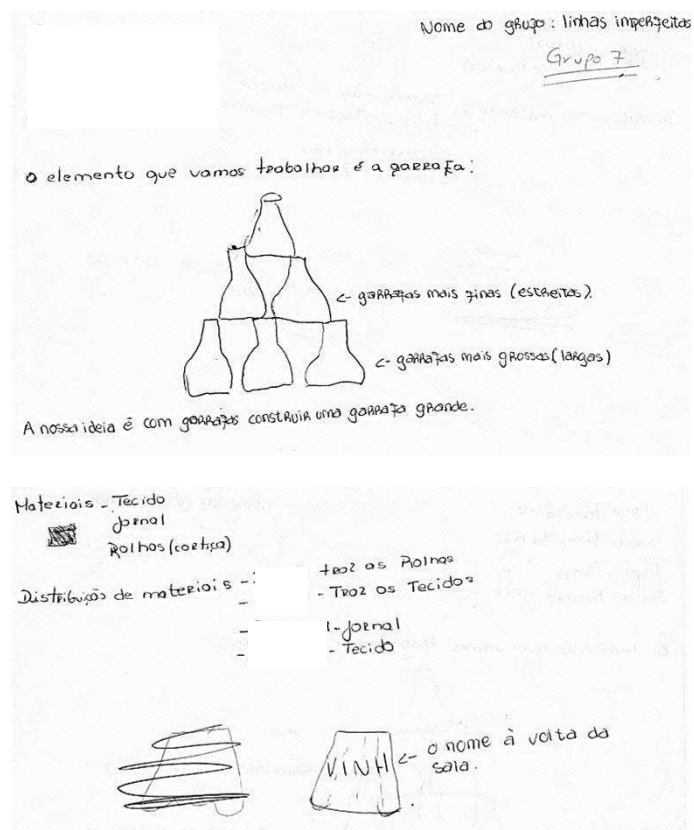 Nome do grupo: linhas imperfeitas
Grupo 7
O elemento que vamos trabalhar é a garrafa:
<- garrafas mais finas (estreitas).
<- garrafas mais grossas (largas)
A nossa ideia é com garrafas construir uma garrafa grande.
Materiais - Tecido
Jornal
Rolhos (cortiça)
Distribuição de materiais - traz as Rolhas
- - Traz os Tecidos
- - Jornal
- - Tecido
VINH <- o nome à volta da
saia.